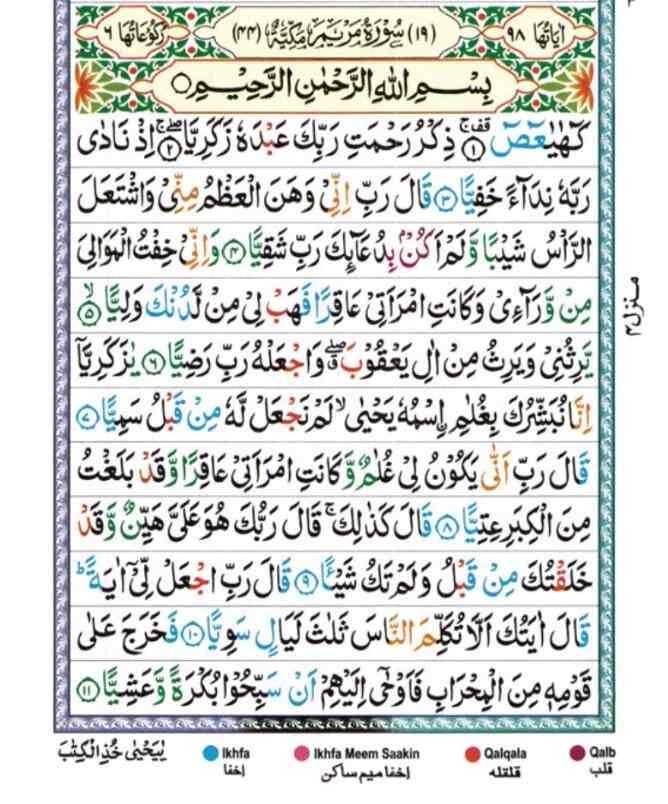 اٰيَاتُهَا ٩٨ (١٩) سُوْرَةُ مَرْيَمَ مَكِّيَّةٌ (٤٤) رُكُوْعَاتُهَا ٦
بِسْمِ اللّٰهِ الرَّحْمٰنِ الرَّحِيْمِ
كٓهٰيٰعٓصٓ ۚ ١ ذِكْرُ رَحْمَتِ رَبِّكَ عَبْدَهٗ زَكَرِيَّا ۖۚ ٢ اِذْ نَادٰى
رَبَّهٗ نِدَآءً خَفِيًّا ٣ قَالَ رَبِّ اِنِّيْ وَهَنَ الْعَظْمُ مِنِّيْ وَاشْتَعَلَ
الرَّاْسُ شَيْبًا وَّلَمْ اَكُنْۢ بِدُعَآئِكَ رَبِّ شَقِيًّا ٤ وَاِنِّيْ خِفْتُ الْمَوَالِيَ
مِنْ وَّرَآءِيْ وَكَانَتِ امْرَاَتِيْ عَاقِرًا فَهَبْ لِيْ مِنْ لَّدُنْكَ وَلِيًّا ۙ ٥
يَّرِثُنِيْ وَيَرِثُ مِنْ اٰلِ يَعْقُوْبَ ۖ وَاجْعَلْهُ رَبِّ رَضِيًّا ٦ يٰزَكَرِيَّآ
اِنَّا نُبَشِّرُكَ بِغُلٰمِ ۨاسْمُهٗ يَحْيٰى ۙ لَمْ نَجْعَلْ لَّهٗ مِنْ قَبْلُ سَمِيًّا ٧
قَالَ رَبِّ اَنّٰى يَكُوْنُ لِيْ غُلٰمٌ وَّكَانَتِ امْرَاَتِيْ عَاقِرًا وَّقَدْ بَلَغْتُ
مِنَ الْكِبَرِ عِتِيًّا ٨ قَالَ كَذٰلِكَ ۚ قَالَ رَبُّكَ هُوَ عَلَيَّ هَيِّنٌ وَّقَدْ
خَلَقْتُكَ مِنْ قَبْلُ وَلَمْ تَكُ شَيْـًٔا ٩ قَالَ رَبِّ اجْعَلْ لِّيْٓ اٰيَةً ؕ
قَالَ اٰيَتُكَ اَلَّا تُكَلِّمَ النَّاسَ ثَلٰثَ لَيَالٍ سَوِيًّا ١٠ فَخَرَجَ عَلٰى
قَوْمِهٖ مِنَ الْمِحْرَابِ فَاَوْحٰٓى اِلَيْهِمْ اَنْ سَبِّحُوْا بُكْرَةً وَّعَشِيًّا ١١
منزل ٤
يٰيَحْيٰى خُذِ الْكِتٰبَ
Ikhfa Ikhfa Meem Saakin Qalqala Qalb
اخفا اخفا میم ساکن قلقله قلب